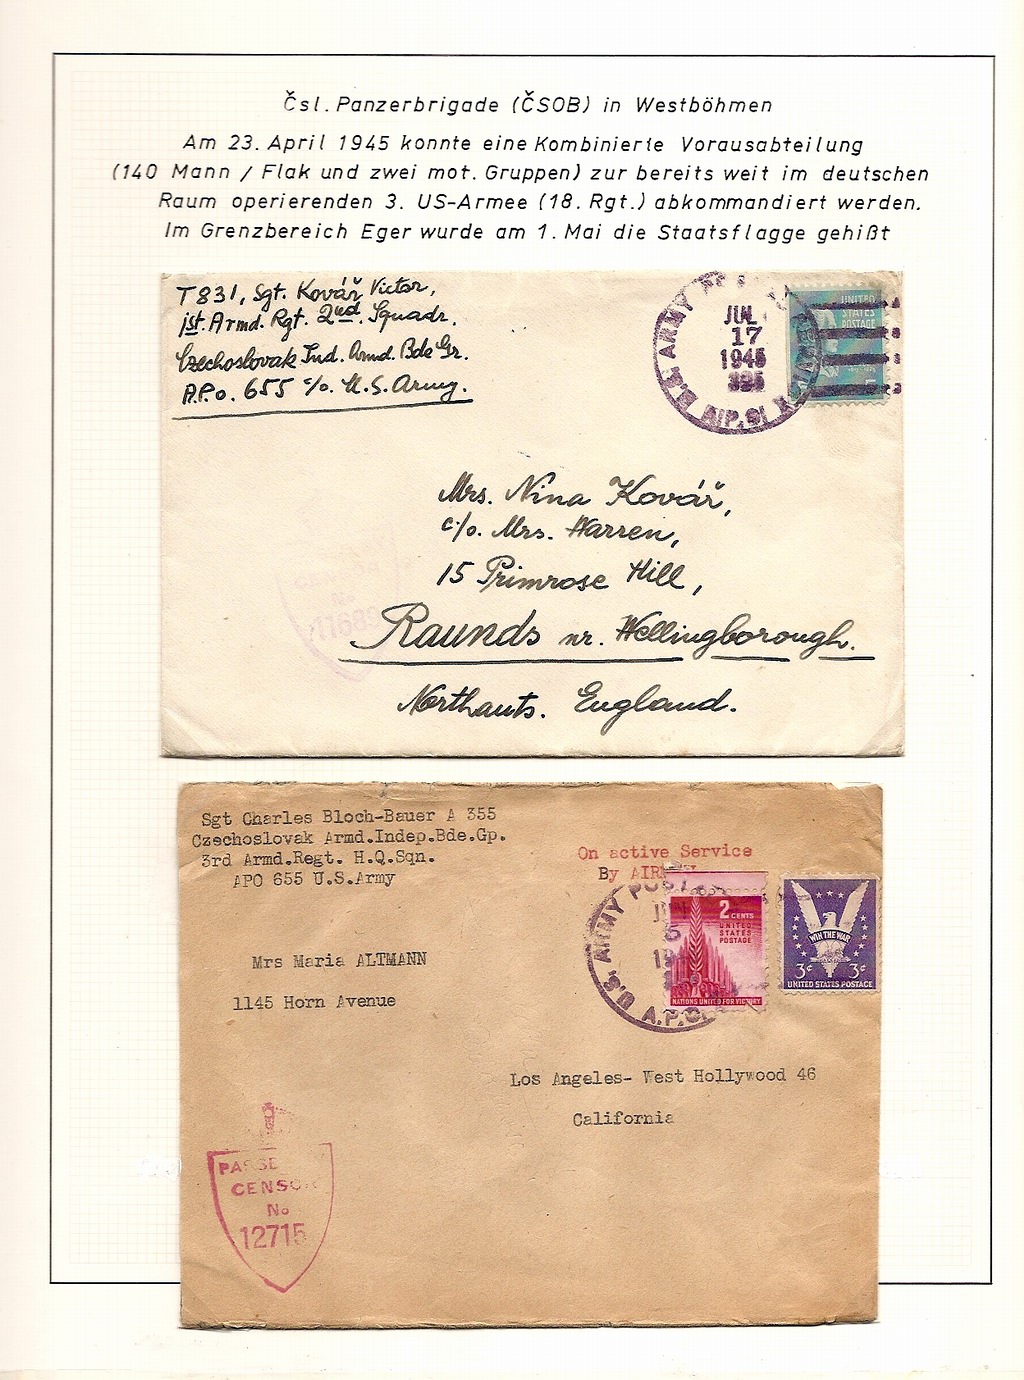 Čsl. Panzerbrigade (ČSOB) in Westböhmen
Am 23. April 1945 konnte eine Kombinierte Vorausabteilung
(140 Mann / Flak und zwei mot. Gruppen) zur bereits weit im deutschen
Raum operierenden 3. US-Armee (18. Rgt.) abkommandiert werden.
Im Grenzbereich Eger wurde am 1. Mai die Staatsflagge gehißt
T831, Sgt. Kovář Victor,
1st. Armd. Rgt. 2nd. Squadr.
Czechoslovak Ind. Armd. Bde Gr.
A.P.o. 655 c/o. U.S. Army.
U.S. ARMY
JUL
17
1945
A.P.O.
UNITED
STATES
POSTAGE
Mrs. Nina Kovář,
c/o. Mrs. Warren,
15 Primrose Hill,
Raunds nr. Wellingborough.
Northants. England.
Sgt Charles Bloch-Bauer A 355
Czechoslovak Armd.Indep.Bde.Gp.
3rd Armd.Regt. H.Q.Sqn.
APO 655 U.S.Army
On active Service
By
U.S. ARMY
A.P.O.
2 CENTS
UNITED
STATES
POSTAGE
NATIONS UNITED FOR VICTORY
WIN THE WAR
3¢ 3¢
UNITED STATES POSTAGE
Mrs Maria ALTMANN
1145 Horn Avenue
Los Angeles- West Hollywood 46
California
PASSE
CENSOR
No
12715